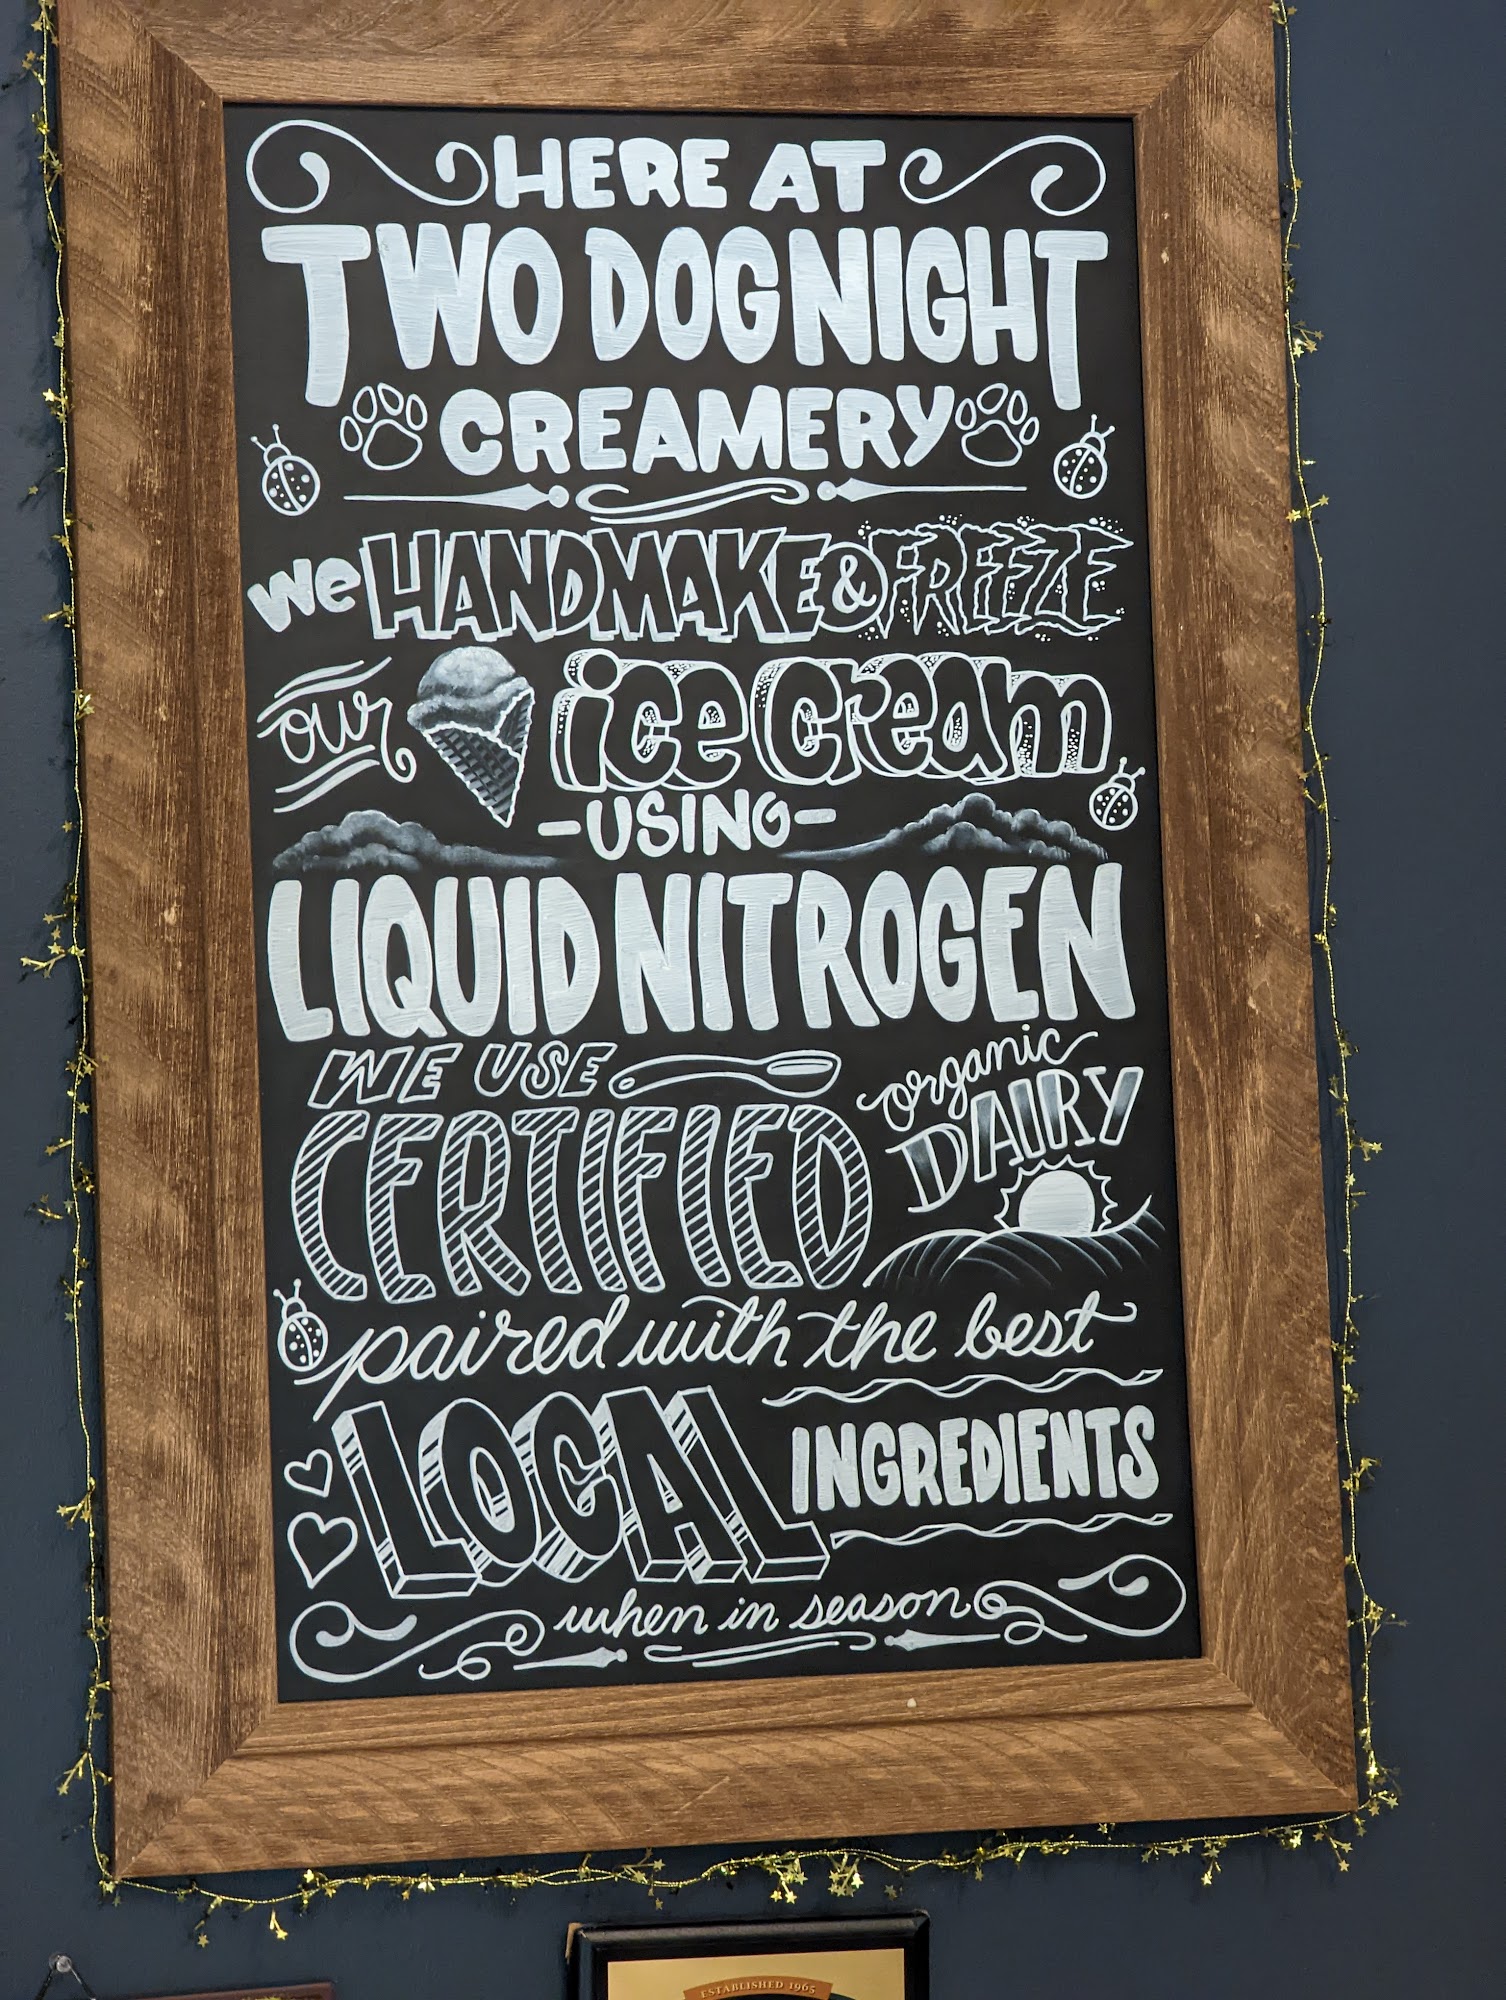 HERE AT
TWO DOG NIGHT
CREAMERY
we HANDMAKE & FREEZE
our ice cream
-USING-
LIQUID NITROGEN
WE USE
CERTIFIED
organic
DAIRY
paired with the best
LOCAL INGREDIENTS
when in season
ESTABLISHED 1965